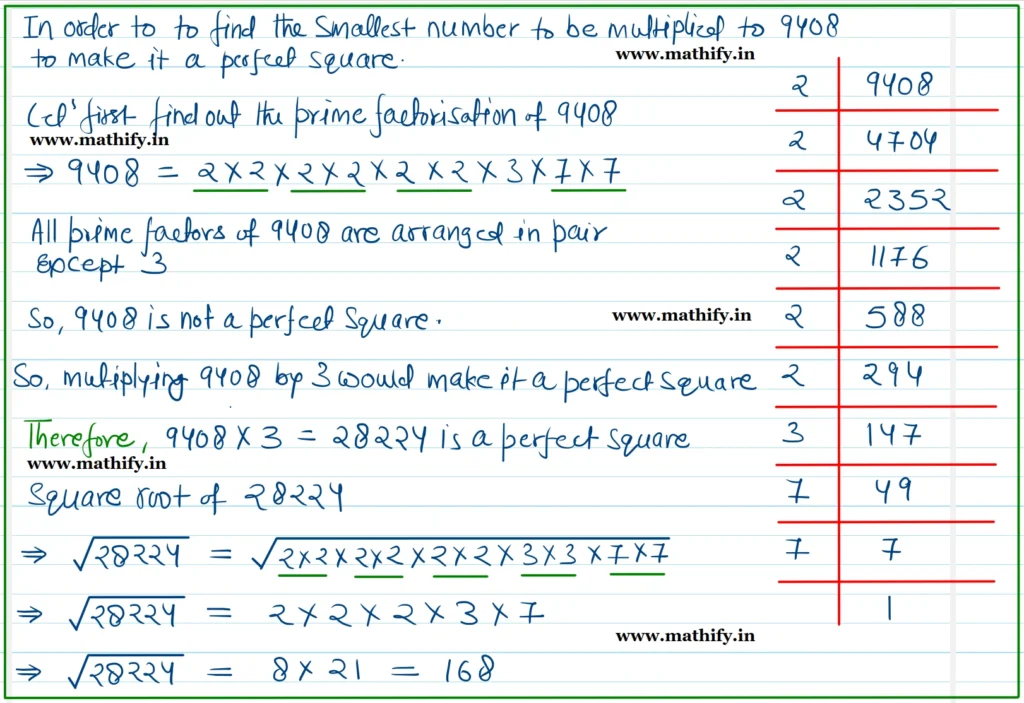 In order to to find the smallest number to be multiplied to 9408
www.mathify.in
to make it a perfect square.
Let' first find out the prime factorisation of 9408
www.mathify.in
⇒ 9408 = 2 × 2 × 2 × 2 × 2 × 2 × 3 × 7 × 7
All prime factors of 9408 are arranged in pair
except 3
So, 9408 is not a perfect square.
www.mathify.in
So, multiplying 9408 by 3 would make it a perfect square
Therefore, 9408 × 3 = 28224 is a perfect square
www.mathify.in
Square root of 28224
⇒ √28224 = √2×2×2×2×2×2×3×3×7×7
⇒ √28224 = 2 × 2 × 2 × 3 × 7
www.mathify.in
⇒ √28224 = 8 × 21 = 168
2 9408
2 4704
2 2352
2 1176
2 588
2 294
3 147
7 49
7 7
1